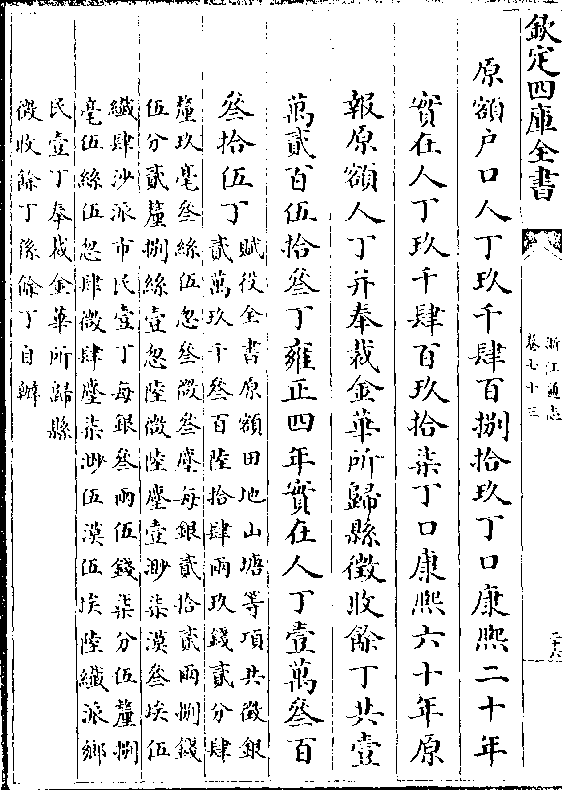 欽定四庫全書
浙江通志
卷七十三
原額户口人丁玖千肆百捌拾玖丁口康熙二十年
實在人丁玖千肆百玖拾柒丁口康熙六十年原
報原額人丁并奉裁金華所歸縣徵收餘丁共壹
萬貳百伍拾叁丁雍正四年實在人丁壹萬叁百
叁拾伍丁
賦役全書原額田地山塘等項共徵銀
貳萬玖千叁百陸拾肆兩玖錢貳分肆
釐玖毫叁絲伍忽叁微叁塵每銀貳拾貳兩捌錢
伍分貳釐捌絲壹忽陸微陸塵壹渺柒漠叁埃伍
纖肆沙派市民壹丁每銀叁兩伍錢柒分伍釐捌
毫伍絲伍忽肆微肆塵柒渺伍漠伍埃陸纖派鄉
民壹丁奉裁金華所歸縣
徵收餘丁係餘丁自辦